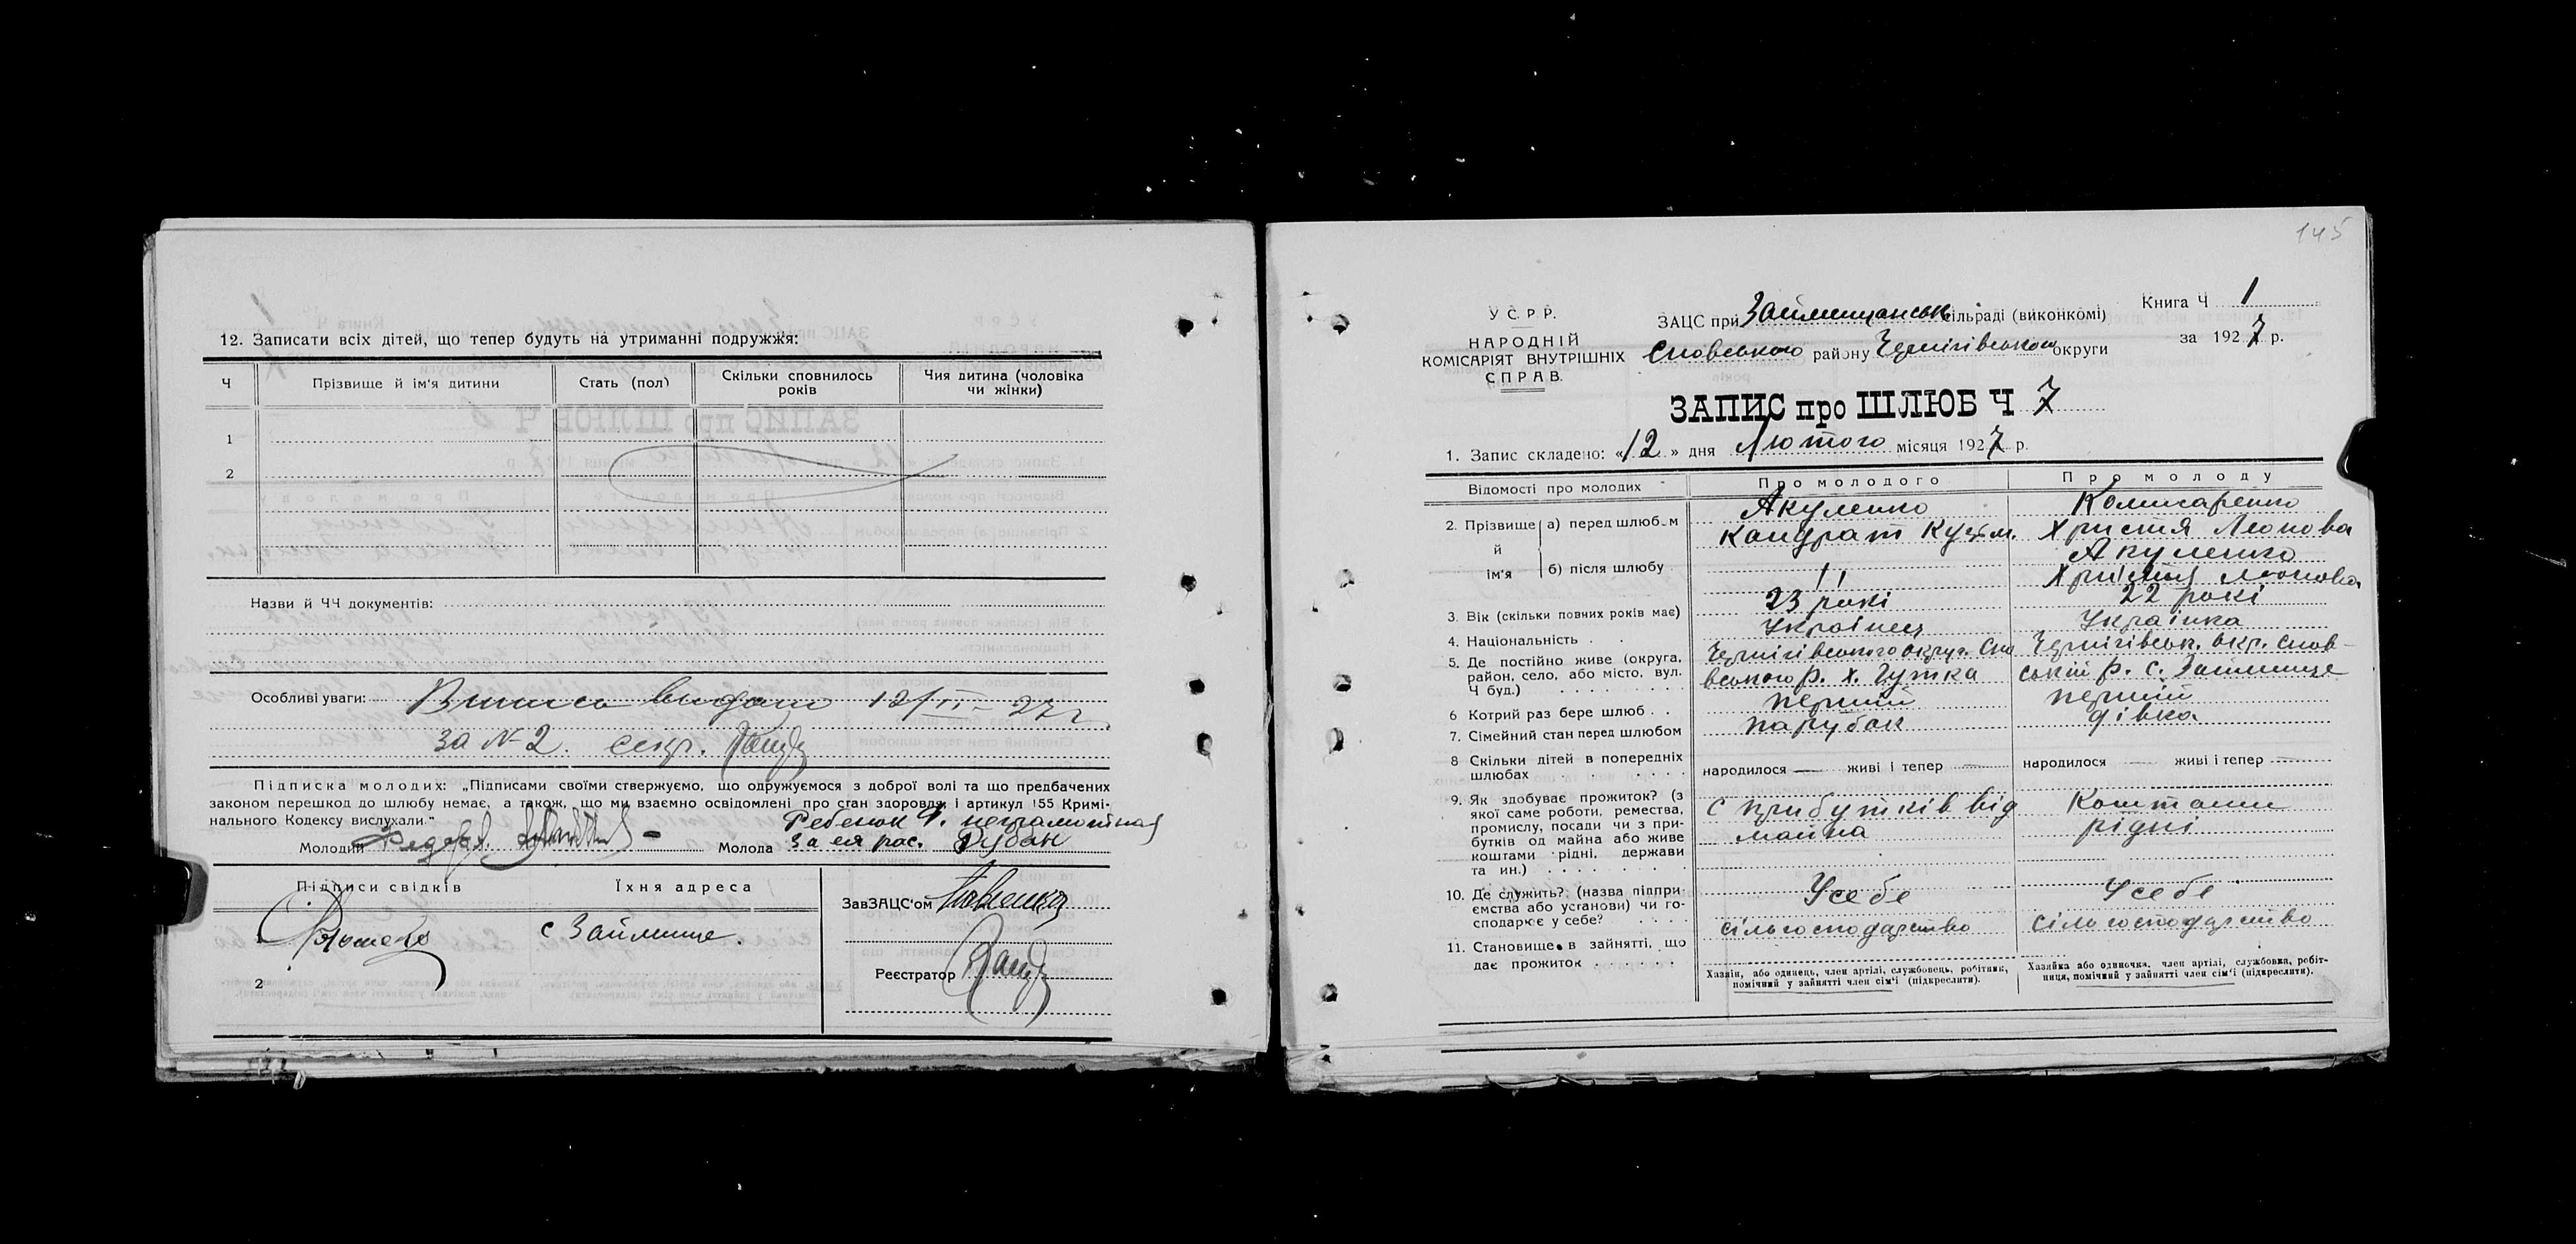 12. Записати всіх дітей, що тепер будуть на утриманні подружжя:
Ч Прізвище й ім'я дитини Стать (пол) Скільки сповнилось років Чия дитина (чоловіка чи жінки)
1
2
Назви й ЧЧ документів:
Особливі уваги: Випись видано 12/II - 27 г.
за № 2. секр.
Підписка молодих: „Підписами своїми стверджуємо, що одружуємося з доброї волі та що предбачених
законом перешкод до шлюбу немає, а також, що ми взаємно освідомлені про стан здоровля і артикул 155 Кримі-
нального Кодексу вислухали."
Молодий Федор
Молода Ребенок Ф. неграмотная
за ея рос. Рубан
Підписи свідків Їхня адреса
с Займище.
2
ЗавЗАЦС'ом
Реєстратор
145
У.С.Р.Р.
НАРОДНІЙ
КОМІСАРІЯТ ВНУТРІШНІХ
СПРАВ.
ЗАЦС при Займищанськ сільраді (виконкомі)
Сновського району Чернігівської округи
Книга Ч 1
за 1927 р.
ЗАПИС про ШЛЮБ Ч 7
1. Запис складено: «12» дня Лютого місяця 1927 р.
Відомості про молодих Про молодого Про молоду
2. Прізвище й ім'я
а) перед шлюбом Акуленко Комисаренко
Кандрат Кузьм. Христія Леонова
б) після шлюбу 11 Акуленко
Христія Леонова
3. Вік (скільки повних років має) 23 рокі 22 рокі
4. Національність Українец Українка
5. Де постійно живе (округа, район, село, або місто, вул. Ч буд.)
Чернігівського округ. Сно Чернігівськ. окр. Снов-
вського р. х. Гутка ській р. с. Займище
6 Котрий раз бере шлюб перший перший
7. Сімейний стан перед шлюбом парубок дівка
8 Скільки дітей в попередніх шлюбах народилося — живі і тепер — народилося — живі і тепер —
9. Як здобуває прожиток? (з якої саме роботи, ремества, промислу, посади чи з прибутків од майна або живе коштами рідні, держави та ин.)
с прибутків від Коштами
майна рідні
10. Де служить? (назва підприємства або установи) чи господарює у себе? У себе У себе
11. Становище в зайнятті, що дає прожиток сільгосподарство сільгосподарство
Хазяїн, або одинець, член артілі, службовець, робітник, помічний у зайнятті член сім'ї (підкреслити).
Хазяйка або одиночка, член артілі, службовка, робітниця, помічний у зайнятті член сім'ї (підкреслити).